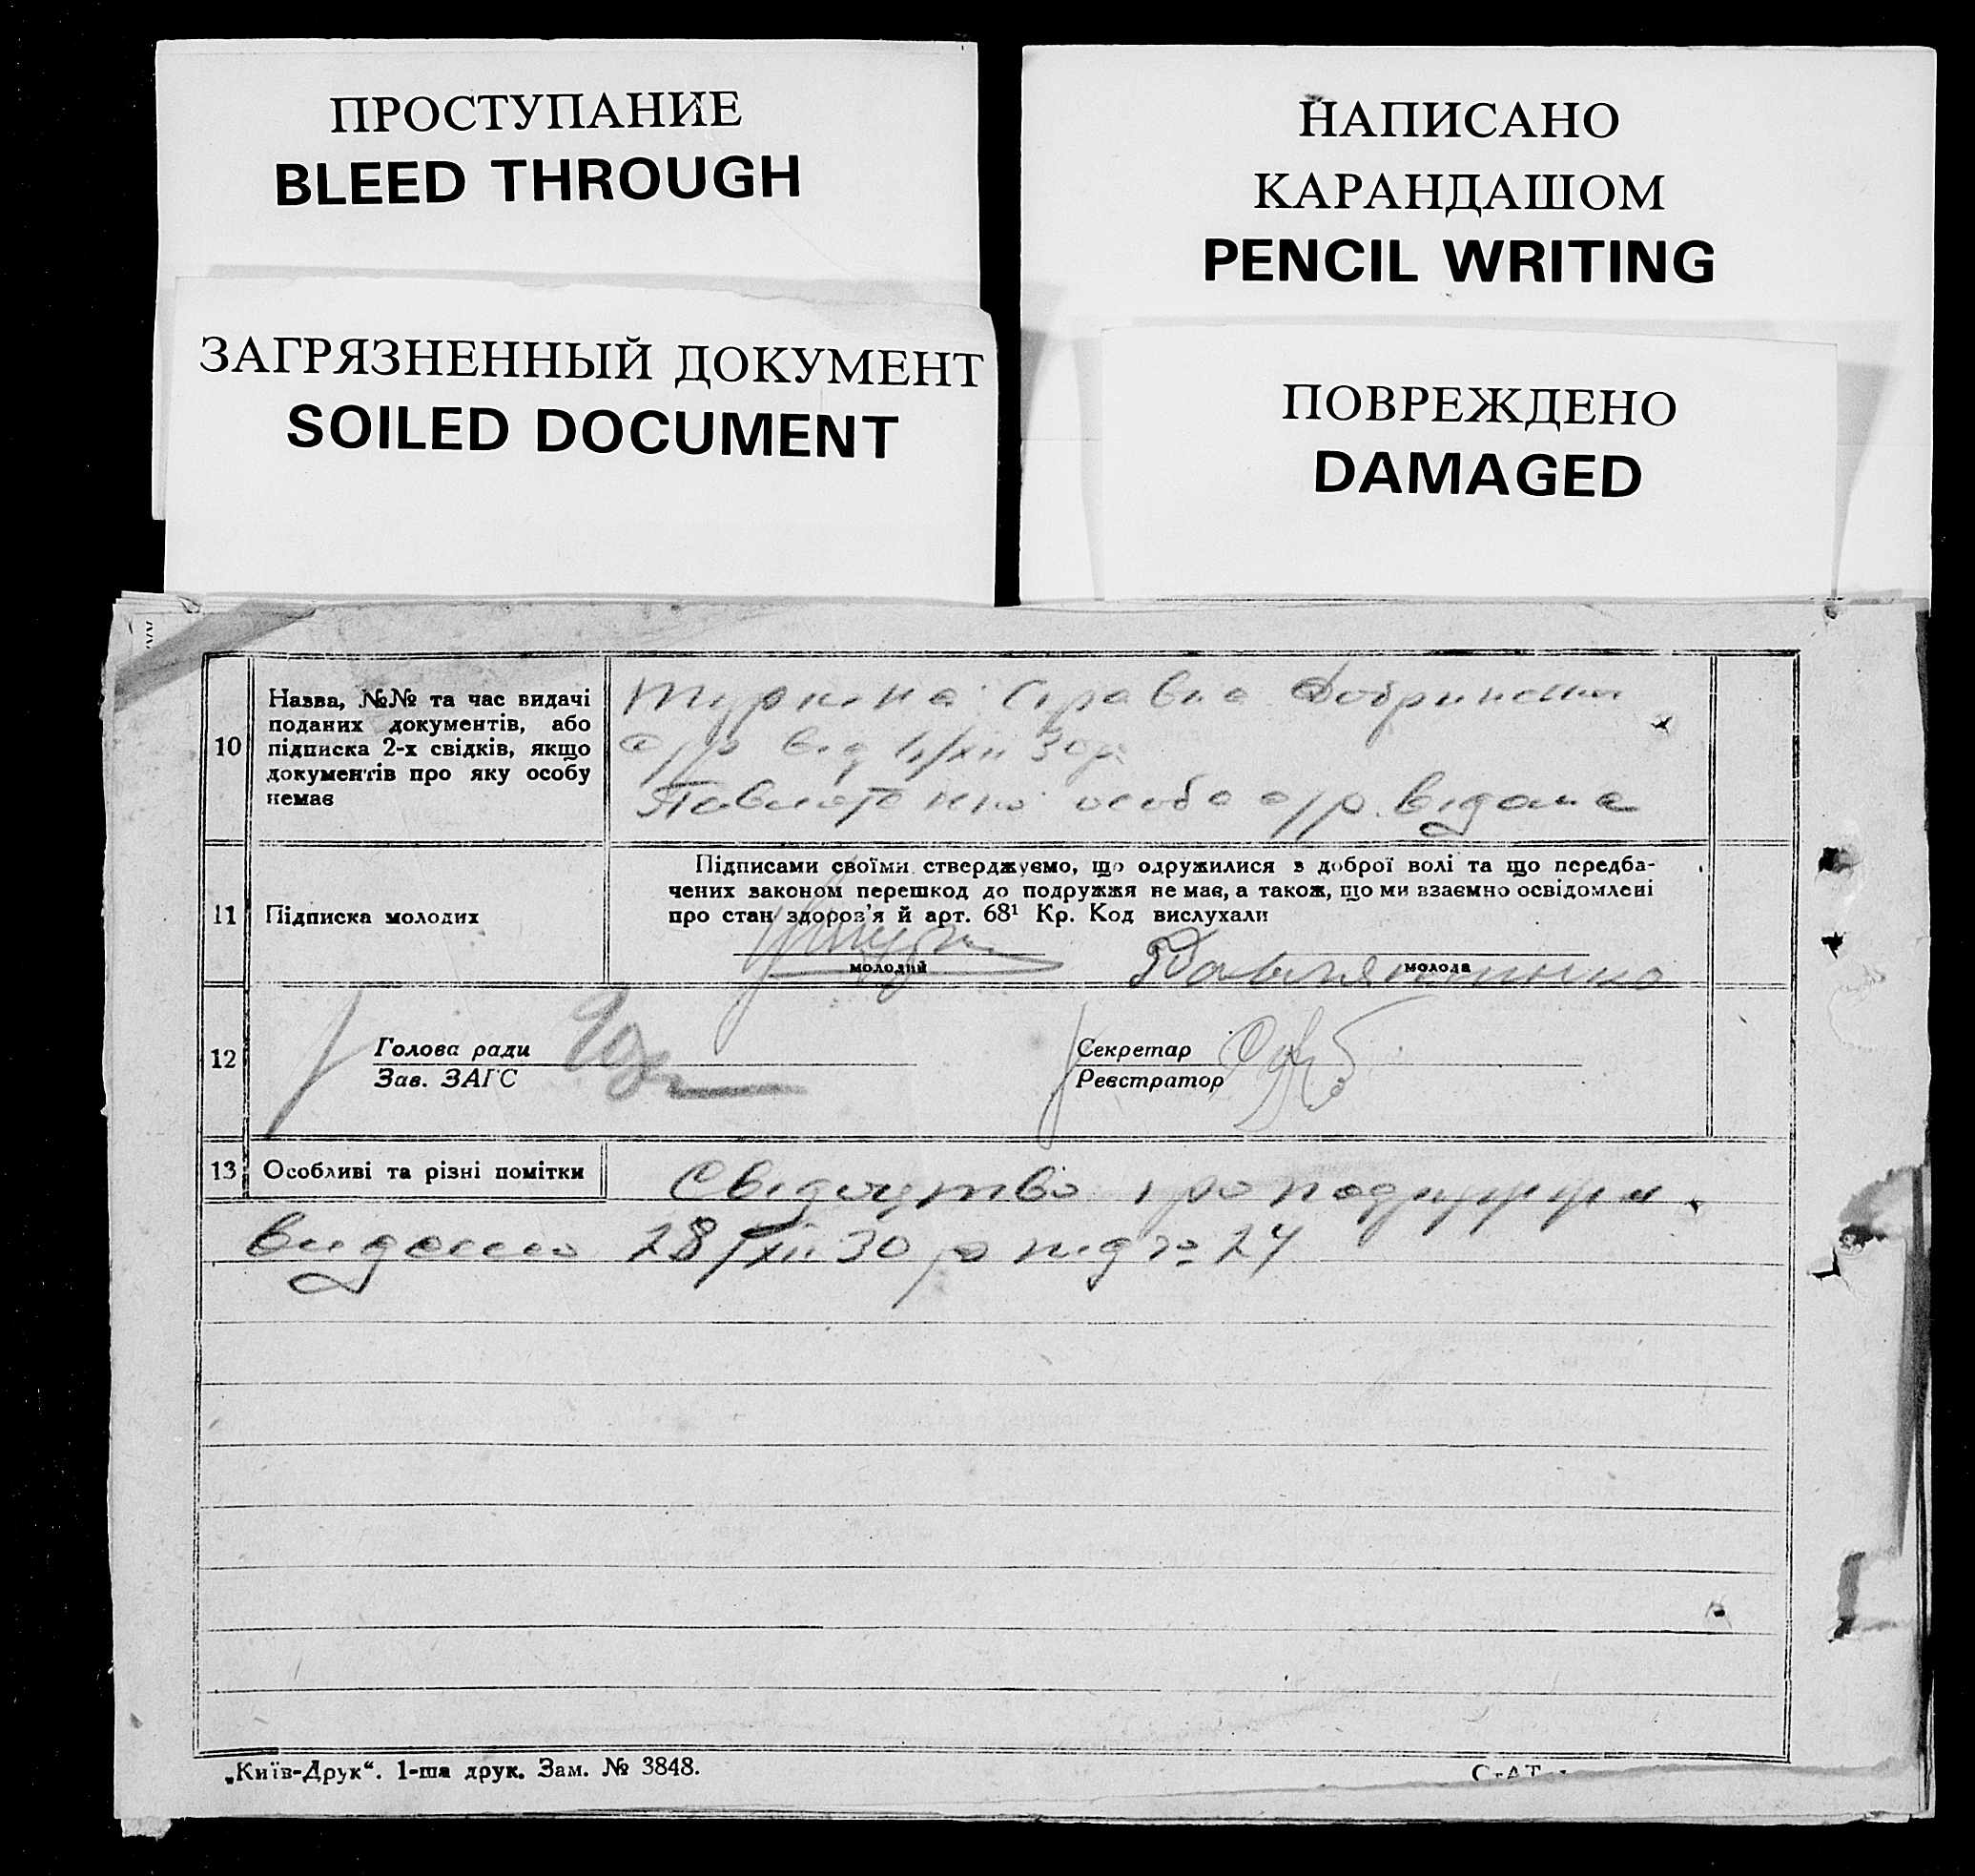 ПРОСТУПАНИЕ
BLEED THROUGH
НАПИСАНО
КАРАНДАШОМ
PENCIL WRITING
ЗАГРЯЗНЕННЫЙ ДОКУМЕНТ
SOILED DOCUMENT
ПОВРЕЖДЕНО
DAMAGED
10
Назва, №№ та час видачі
поданих документів, або
підписка 2-х свідків, якщо
документів про яку особу
немає
від XII 30 р.
особа с/р. відома
11
Підписка молодих
Підписами своїми стверджуємо, що одружилися з доброї волі та що передба-
чених законом перешкод до подружжя не має, а також, що ми взаємно освідомлені
про стан здоров'я й арт. 68¹ Кр. Код вислухали
молодий
молода
12
Голова ради
Зав. ЗАГС
Секретар
Реєстратор
13
Особливі та різні помітки
Свідоцтво про подружжя
видано 28/XII 30 р під № 24
„Київ-Друк“. 1-ша друк. Зам. № 3848.